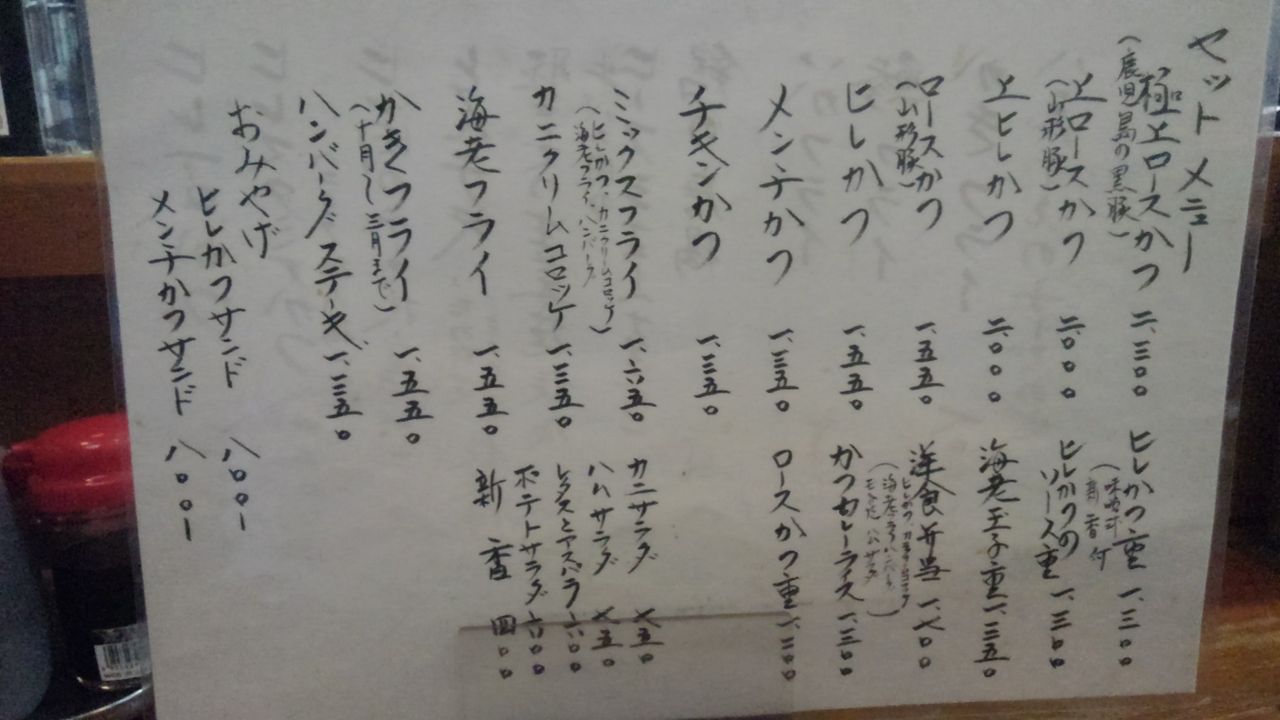 セットメニュー
極上ロースかつ 二、三〇〇
(鹿児島の黒豚)
上ロースかつ 二、〇〇〇
(山形豚)
上ヒレかつ 二、〇〇〇
ロースかつ 一、五五〇
(山形豚)
ヒレかつ 一、五五〇
メンチかつ 一、三五〇
チキンかつ 一、三五〇
ミックスフライ 一、六五〇
(ヒレかつ、カニクリームコロッケ
海老フライ、ハンバーグ)
カニクリームコロッケ 一、三五〇
海老フライ 一、五五〇
かきフライ 一、五五〇
(十月〜三月まで)
ハンバーグステーキ 一、三五〇
おみやげ
ヒレかつサンド 八〇〇ー
メンチかつサンド 八〇〇ー
ヒレかつ重 一、三〇〇
(味噌汁
新香付)
ヒレかつの
ソース重 一、三〇〇
海老玉子重 一、三五〇
洋食弁当 一、七〇〇
かつカレーライス 一、三〇〇
ロースかつ重 一、三〇〇
カニサラダ 七五〇
ハムサラダ 七五〇
レタスとアスパラ 六〇〇
ポテトサラダ 六〇〇
新香 四〇〇